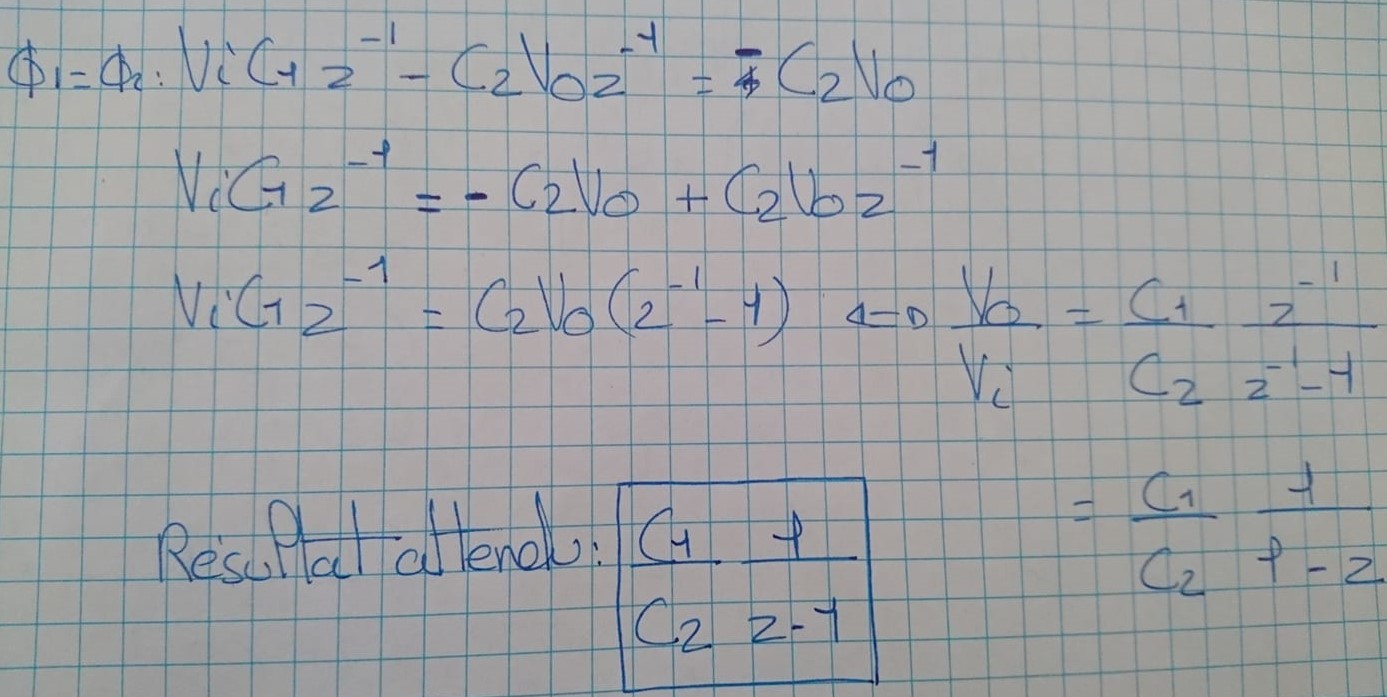 Φ1=Φ2: ViC1 z^-1 - C2Voz^-1 = - C2Vo
ViC1 z^-1 = - C2Vo + C2Voz^-1
ViC1 z^-1 = C2Vo(z^-1 - 1) <=> Vo/Vi = C1/C2 z^-1/(z^-1 - 1)
= C1/C2 1/(1 - z)
Résultat attendu: C1/C2 1/(z-1)